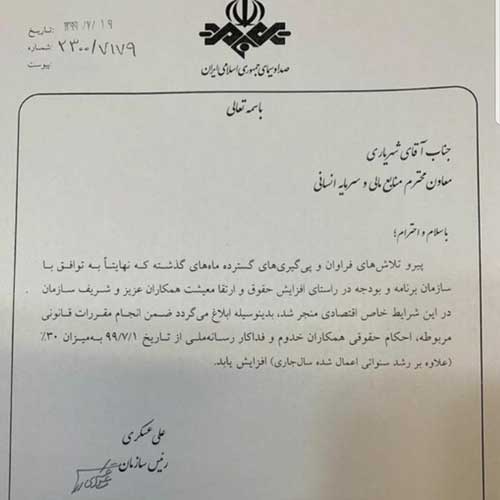 تاریخ: ۱۳۹۹/۷/۱۹
شماره: ۲۳۰۰/۷۱۷۹
پیوست:
صدا و سیمای جمهوری اسلامی ایران
باسمه تعالی
جناب آقای شهریاری
معاون محترم منابع مالی و سرمایه انسانی
باسلام و احترام؛
پیرو تلاش‌های فراوان و پی‌گیری‌های گسترده ماه‌های گذشته که نهایتاً به توافق با
سازمان برنامه و بودجه در راستای افزایش حقوق و ارتقا معیشت همکاران عزیز و شریف سازمان
در این شرایط خاص اقتصادی منجر شد، بدینوسیله ابلاغ می‌گردد ضمن انجام مقررات قانونی
مربوطه، احکام حقوقی همکاران خدوم و فداکار رسانه‌ملی از تاریخ ۹۹/۷/۱ به‌میزان ۳۰٪
(علاوه بر رشد سنواتی اعمال شده سال‌جاری) افزایش یابد.
علی عسکری
رئیس سازمان